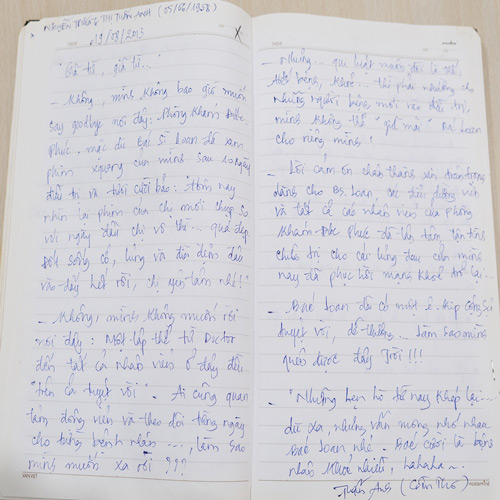 NGUYỄN TRƯƠNG THỊ TUẤN ANH (05/06/1958)
19/08/2013 X
"Giã từ, giã từ..."
- Không, mình không bao giờ muốn
say goodbye nơi đây: Phòng khám
Phục. mặc dù Bác sĩ Loan đã xem
phim xương của mình sau 10 ngày
điều trị và tươi cười bảo: "Hôm nay
nhìn lại phim của chị mới chụp so
với ngày đầu chị vô thì... quá đẹp
Đốt sống cổ, lưng và đĩa đệm đều
vào đấy hết rồi, chị yên tâm nhé!"
- Không, mình không muốn rời
nơi đây: Một tập thể từ Doctor
đến tất cả nhân viên ở đây đều
"trên cả tuyệt vời". Ai cũng quan
tâm động viên và theo dõi từng ngày
cho từng bệnh nhân ..., làm sao
mình muốn xa rời ???
VANVIET
- Nhưng... qui luật muôn đời là thế,
hết bệnh, khỏe... thì phải nhường cho
những người bệnh mới vào điều trị,
mình không thể "giữ mãi" Bs Loan
cho riêng mình!
- Lời cảm ơn chân thành xin trân trọng
dành cho Bs. Loan, các điều dưỡng viên
và tất cả các nhân viên của phòng
khám Phục đã tận tâm, tận tình
chữa trị cho cái lưng đau của mình
nay đã phục hồi mạnh khỏe trở lại.
- Bác Loan ơi có một ê-kíp cộng sự
tuyệt vời, dễ thương... làm sao mình
quên được đây Trời!!!
- "Những hẹn hò từ nay khép lại...
dù xa, nhưng vẫn mong nhớ nhau
Bác Loan nhé. Bác cười là bệnh
nhân khỏe nhiều, hahaha...
Tuấn Anh (Cần Thơ)